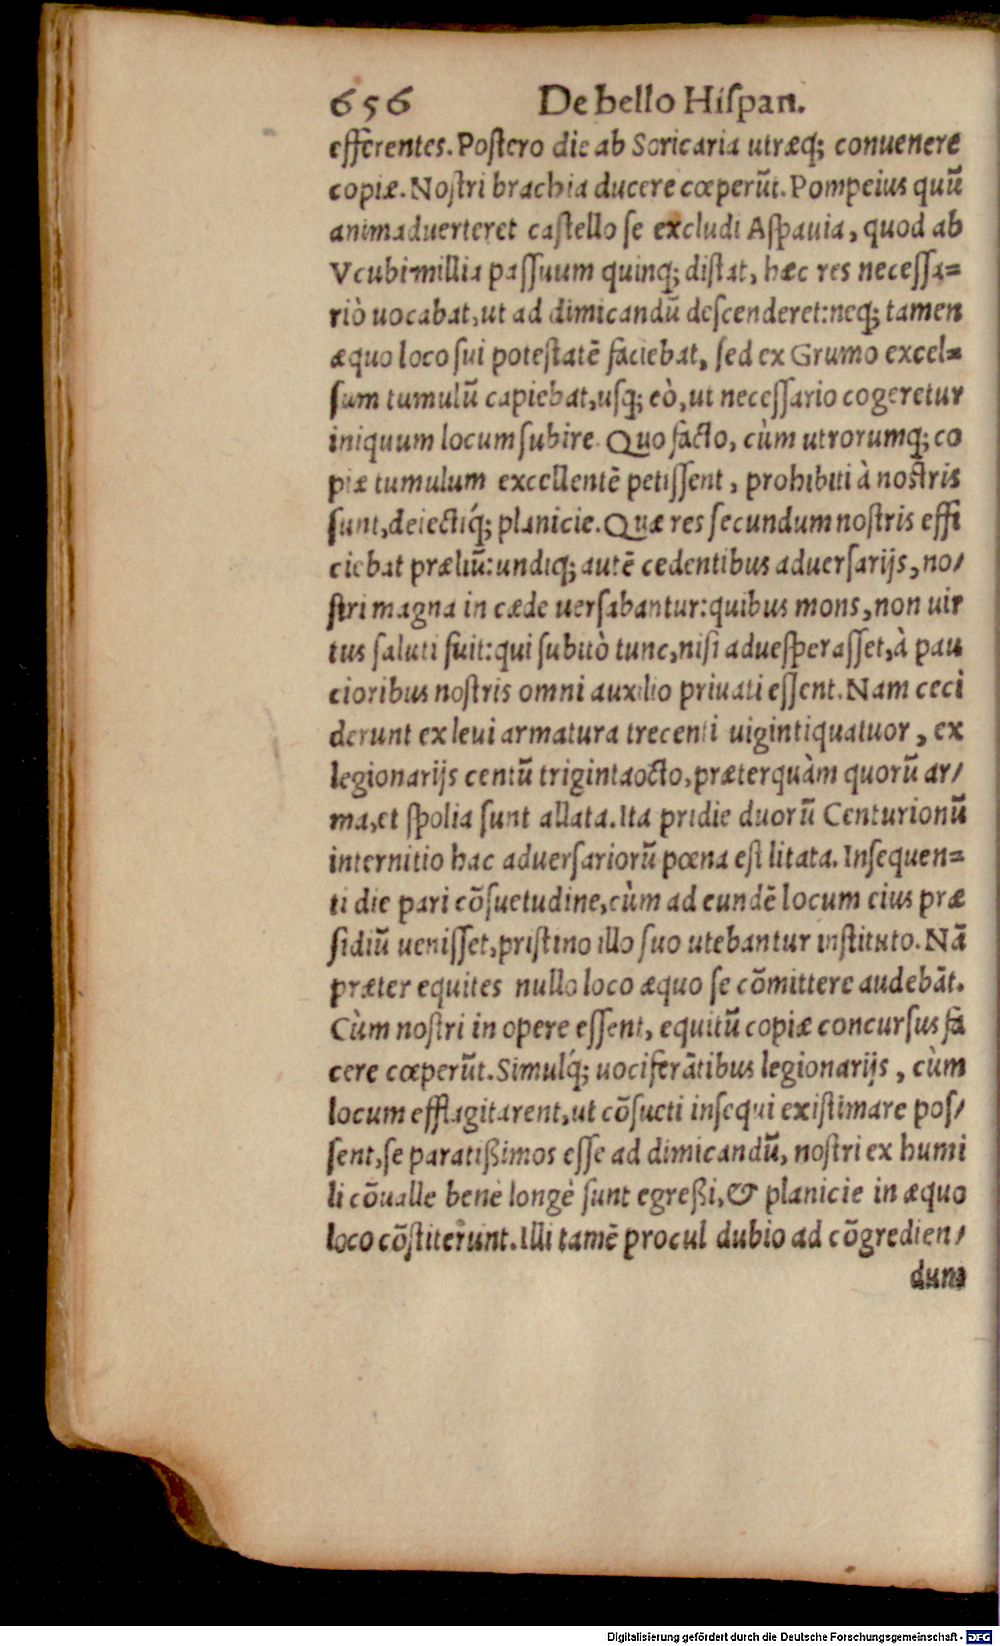 656 De bello Hiſpan.
efferentes. Poſtero die ab Soricaria utræq; conuenere
copiæ. Noſtri brachia ducere cœperūt. Pompeius quū
animaduerteret caſtello ſe excludi Aſpauia, quod ab
Vcubi millia paſſuum quinq; diſtat, hæc res neceſſa=
riò uocabat, ut ad dimicandū deſcenderet: neq; tamen
æquo loco ſui poteſtatē faciebat, ſed ex Grumo excel=
ſum tumulū capiebat, uſq; eò, ut neceſſario cogeretur
iniquum locum ſubire. Quo facto, cùm utrorumq; co
piæ tumulum excellentē petiſſent, prohibiti à noſtris
ſunt, deiectiq́; planicie. Quæ res ſecundum noſtris effi
ciebat præliū: undiq; autē cedentibus aduerſarijs, no/
ſtri magna in cæde uerſabantur: quibus mons, non uir
tus ſaluti fuit: qui ſubitò tunc, niſi adueſperaſſet, à pau
cioribus noſtris omni auxilio priuati eſſent. Nam ceci
derunt ex leui armatura trecenti uigintiquatuor, ex
legionarijs centū trigintaocto, præterquàm quorū ar/
ma, et ſpolia ſunt allata. Ita pridie duorū Centurionū
internitio hac aduerſariorū pœna eſt litata. Inſequen=
ti die pari cōſuetudine, cùm ad eundē locum eius præ
ſidiū ueniſſet, priſtino illo ſuo utebantur inſtituto. Nā
præter equites nullo loco æquo ſe cōmittere audebāt.
Cùm noſtri in opere eſſent, equitū copiæ concurſus fa
cere cœperūt. Simulq́; uociferātibus legionarijs, cùm
locum efflagitarent, ut cōſueti inſequi exiſtimare poſ/
ſent, ſe paratißimos eſſe ad dimicandū, noſtri ex humi
li cōualle benè longè ſunt egreßi, & planicie in æquo
loco cōſtiterunt. Illi tamē procul dubio ad cōgredien/
dum
Digitalisierung gefördert durch die Deutsche Forschungsgemeinschaft - DFG